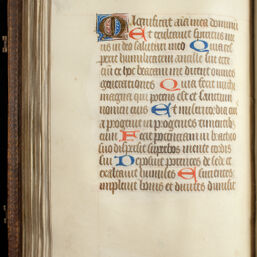 Magnificat aīa mea dominū
Et exultauit spiritus me
us in deo salutari meo Quia res
pexit humilitatem ancille sue ecce
enī ex hoc beatam me dicent omnes
generationes Quia fecit michi
magna qui potens est et sanctum
nomen eius Et misericordia eius
a progenie in progenies timentibus
eum Fecit potentiam in brachio
suo dispersit superbos mente cordis
sui Deposuit potentes de sede et
exaltauit humiles Esurientes
impleuit bonis et diuites dimisit